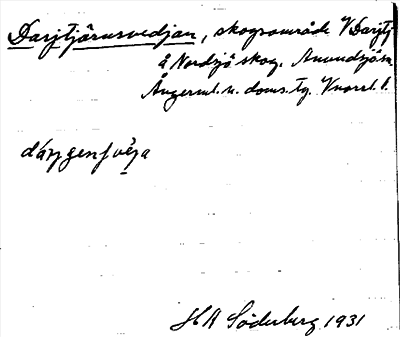 Darjtjärnsvedjan, skogsområde V Darjtj
å Nordsjö skog. Anundsjö sn
Ångerml. n. doms. tg. Vnorrl. l.
HA Söderberg 1931